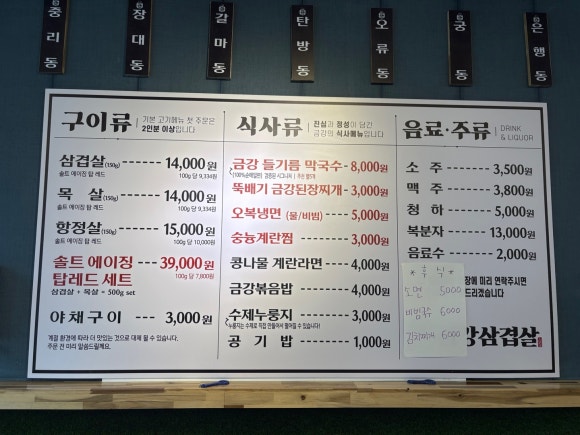 중리동
장대동
갈마동
탄방동
오류동
궁동
은행동
구이류
기본 고기메뉴 첫 주문은
2인분 이상입니다
삼겹살(150g) ------ 14,000원
솔트 에이징 탑 레드
100g 당 9,334원
목 살(150g) ------ 14,000원
솔트 에이징 탑 레드
100g 당 9,334원
항정살(150g) ------ 15,000원
솔트 에이징 탑 레드
100g 당 10,000원
솔트 에이징 --- 39,000원
탑레드 세트
100g 당 7,800원
삼겹살 + 목살 = 500g set
야채구이 --- 3,000원
계절 환경에 따라 더 맛있는 것으로 대체 될 수 있습니다.
주문 전 미리 말씀드릴께요.
식사류
진실과 정성이 담긴
금강의 식사메뉴입니다
금강 들기름 막국수 - 8,000원
뚝배기 금강된장찌개 - 3,000원
오복냉면 (물/비빔) --- 5,000원
숭늉계란찜 ------ 3,000원
콩나물 계란라면 --- 4,000원
금강볶음밥 ------ 4,000원
수제누룽지 ------ 3,000원
누룽지는 수제로 직접 만들어서 품절될 수 있습니다
공기밥 ------ 1,000원
음료·주류
DRINK
& LIQUOR
소 주 ------ 3,500원
맥 주 ------ 3,800원
청 하 ------ 5,000원
복분자 ------ 13,000원
음료수 ------ 2,000원
장에 미리 연락주시면
드리겠습니다
* 후식 *
소면 5000
비빔국수 6000
김치찌개 6000
강삼겹살